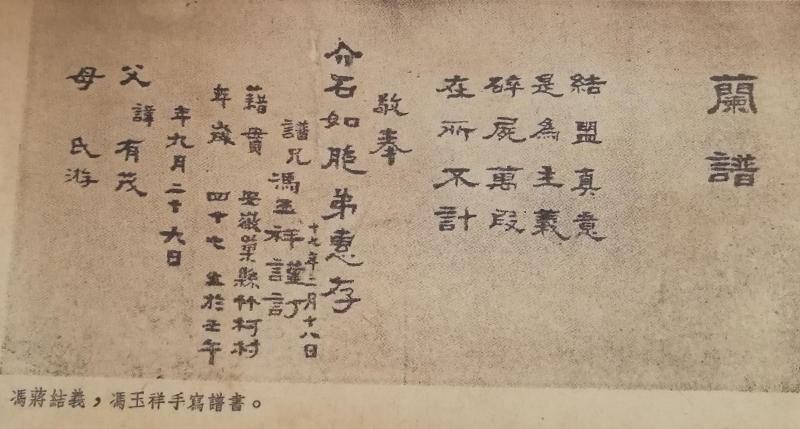 蘭譜
結盟真意
是為主義
碎屍萬段
在所不計
敬奉
介石如胞弟惠存
十七年二月十八日
譜兄馮玉祥謹訂
籍貫 安徽巢縣竹柯村
年歲 四十七 生於壬午
年九月二十六日
父 諱有茂
母 氏游
馮蔣結義，馮玉祥手寫譜書。